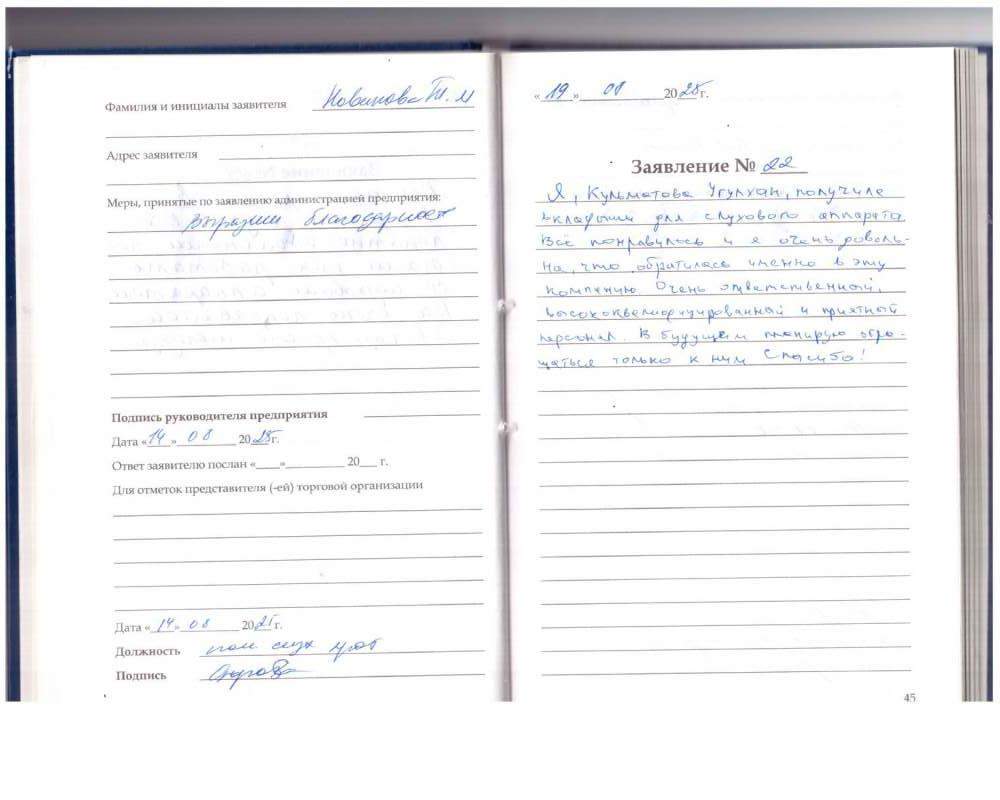 Фамилия и инициалы заявителя Новикова Т. М
Адрес заявителя
Меры, принятые по заявлению администрацией предприятия:
Выразили благодарност
Подпись руководителя предприятия
Дата «14» 08 2025г.
Ответ заявителю послан «___»_________ 20___ г.
Для отметок представителя (-ей) торговой организации
Дата «14» 08 2025г.
Должность
Подпись
«19» 08 2025г.
Заявление № 22
Я, Кульматова Угулхан, получила
вкладыши для слухового аппарата
Всё понравилось и я очень доволь-
на, что обратилась именно в эту
компанию. Очень ответственный,
высококвалифицированный и приятный
персонал. В будущем планирую обра-
щаться только к ним Спасибо!
45